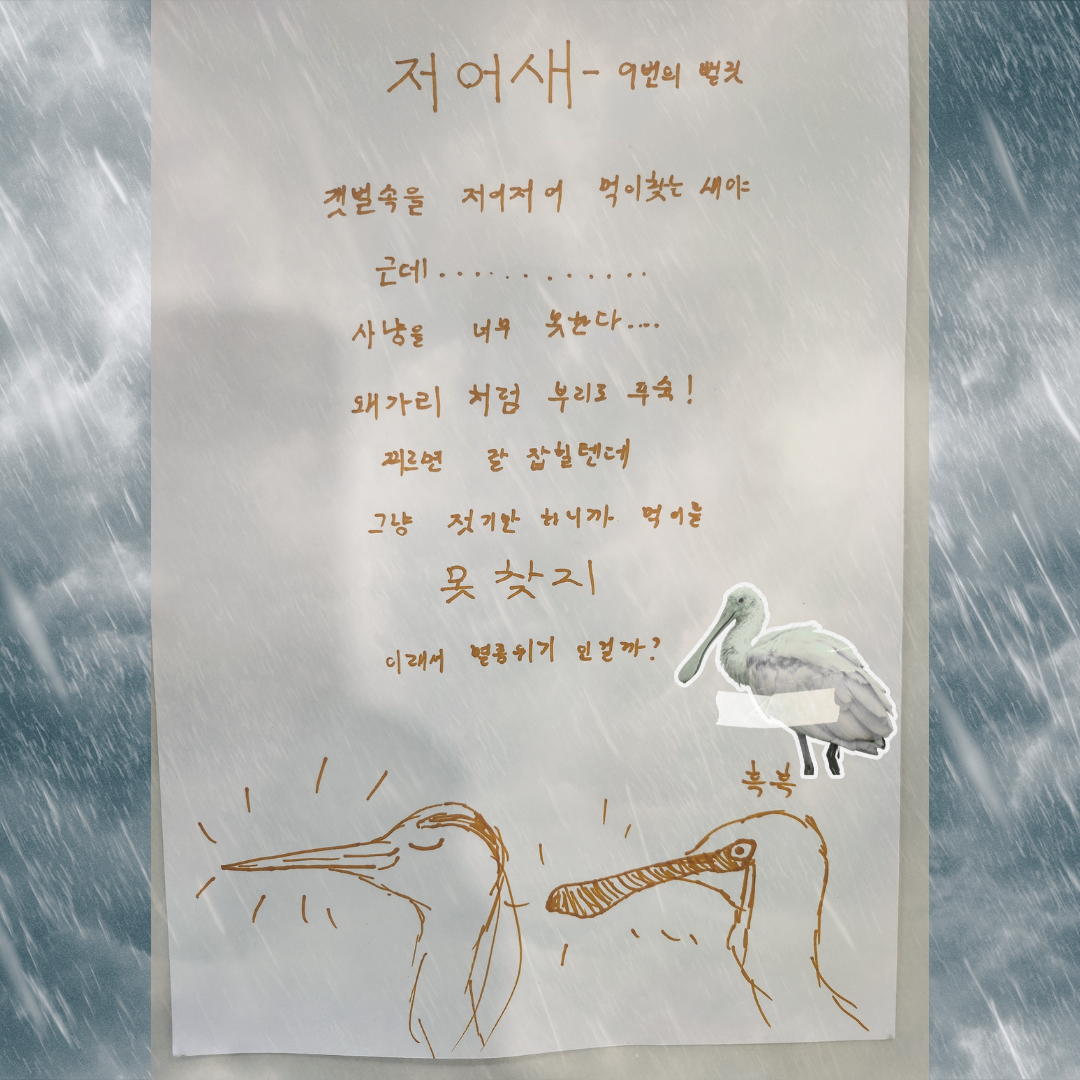 저어새 - 9번의 뻘짓
갯벌속을 저어저어 먹이찾는 새야
근데............
사냥을 너무 못한다....
왜가리 처럼 부리로 푸슉!
찌르면 잘 잡힐텐데
그냥 젓기만 하니까 먹이를
못찾지
이래서 멸종위기 인걸까?
흑흑